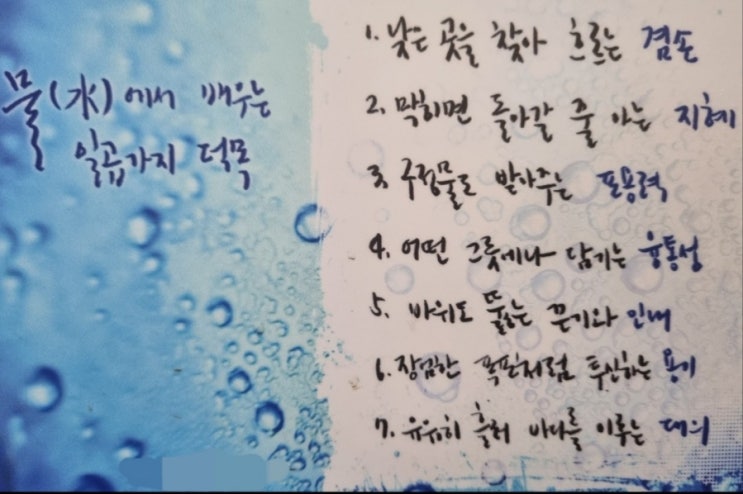 물(水)에서 배우는
일곱가지 덕목
1. 낮은 곳을 찾아 흐르는 겸손
2. 막히면 돌아갈 줄 아는 지혜
3. 구정물도 받아주는 포용력
4. 어떤 그릇에나 담기는 융통성
5. 바위도 뚫는 끈기와 인내
6. 장엄한 폭포처럼 투신하는 용기
7. 유유히 흘러 바다를 이루는 대의